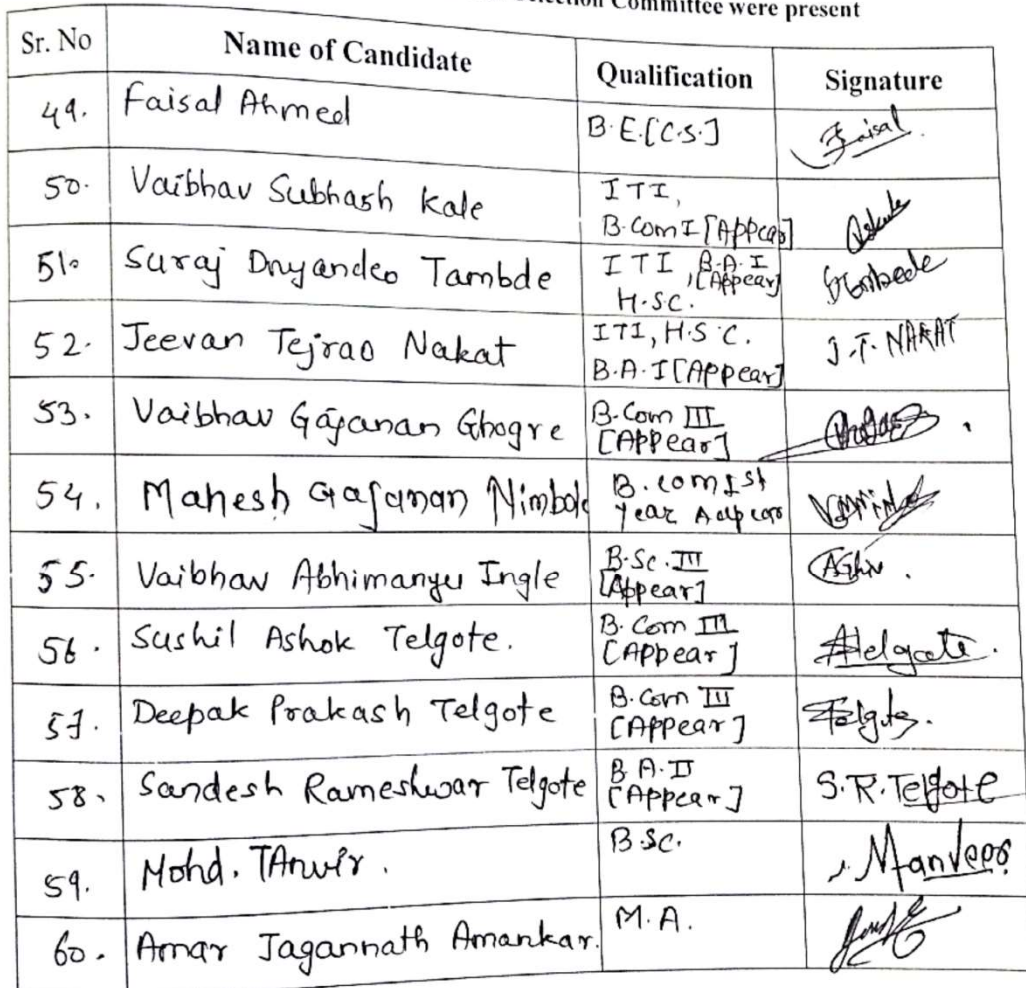 Selection Committee were present
Sr. No Name of Candidate Qualification Signature
49. Faisal Ahmed B.E.[C.S.] Faisal.
50. Vaibhav Subhash Kale ITI,
B.Com I [Appear]
51. Suraj Dnyandeo Tambde ITI, B.A.I
[Appear]
H.S.C.
52. Jeevan Tejrao Nakat ITI, H.S.C. J.T. NAKAT
B.A.I [Appear]
53. Vaibhav Gajanan Ghogre B.Com III
[Appear]
54. Mahesh Gajanan Nimbole B.com Ist
year
55. Vaibhav Abhimanyu Ingle B.Sc. III
[Appear]
56. Sushil Ashok Telgote. B.Com III
[Appear] Telgote.
57. Deepak Prakash Telgote B.Com III
[Appear] Telgote.
58. Sandesh Rameshwar Telgote B.A.II S.R.Telgote
[Appear]
59. Mohd. TAnvir. B.SC.
60. Amar Jagannath Amankar. M.A.